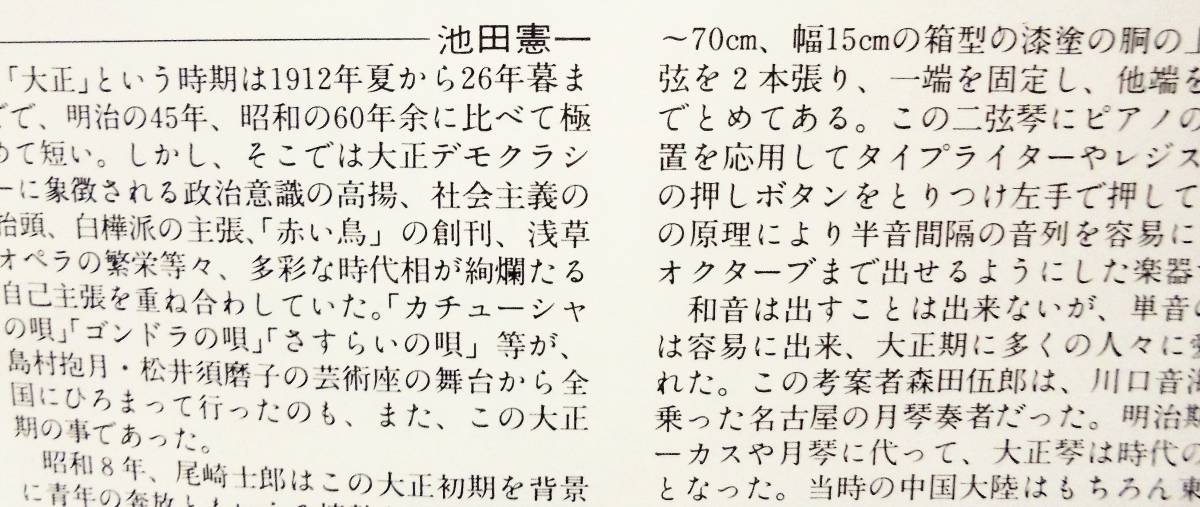 池田憲一
「大正」という時期は1912年夏から26年暮ま
で、明治の45年、昭和の60年余に比べて極
めて短い。しかし、そこでは大正デモクラシ
ーに象徴される政治意識の高揚、社会主義の
抬頭、白樺派の主張、「赤い鳥」の創刊、浅草
オペラの繁栄等々、多彩な時代相が絢爛たる
自己主張を重ね合わしていた。「カチューシャ
の唄」「ゴンドラの唄」「さすらいの唄」等が、
島村抱月・松井須磨子の芸術座の舞台から全
国にひろまって行ったのも、また、この大正
期の事であった。
昭和8年、尾崎士郎はこの大正初期を背景
に青年の奔放
〜70cm、幅15cmの箱型の漆塗の胴の上
弦を2本張り、一端を固定し、他端を
でとめてある。この二弦琴にピアノの
置を応用してタイプライターやレジス
の押しボタンをとりつけ左手で押して
の原理により半音間隔の音列を容易に
オクターブまで出せるようにした楽器
和音は出すことは出来ないが、単音
は容易に出来、大正期に多くの人々に
れた。この考案者森田伍郎は、川口音
乗った名古屋の月琴奏者だった。明治期
ーカスや月琴に代って、大正琴は時代の
となった。当時の中国大陸はもちろん東